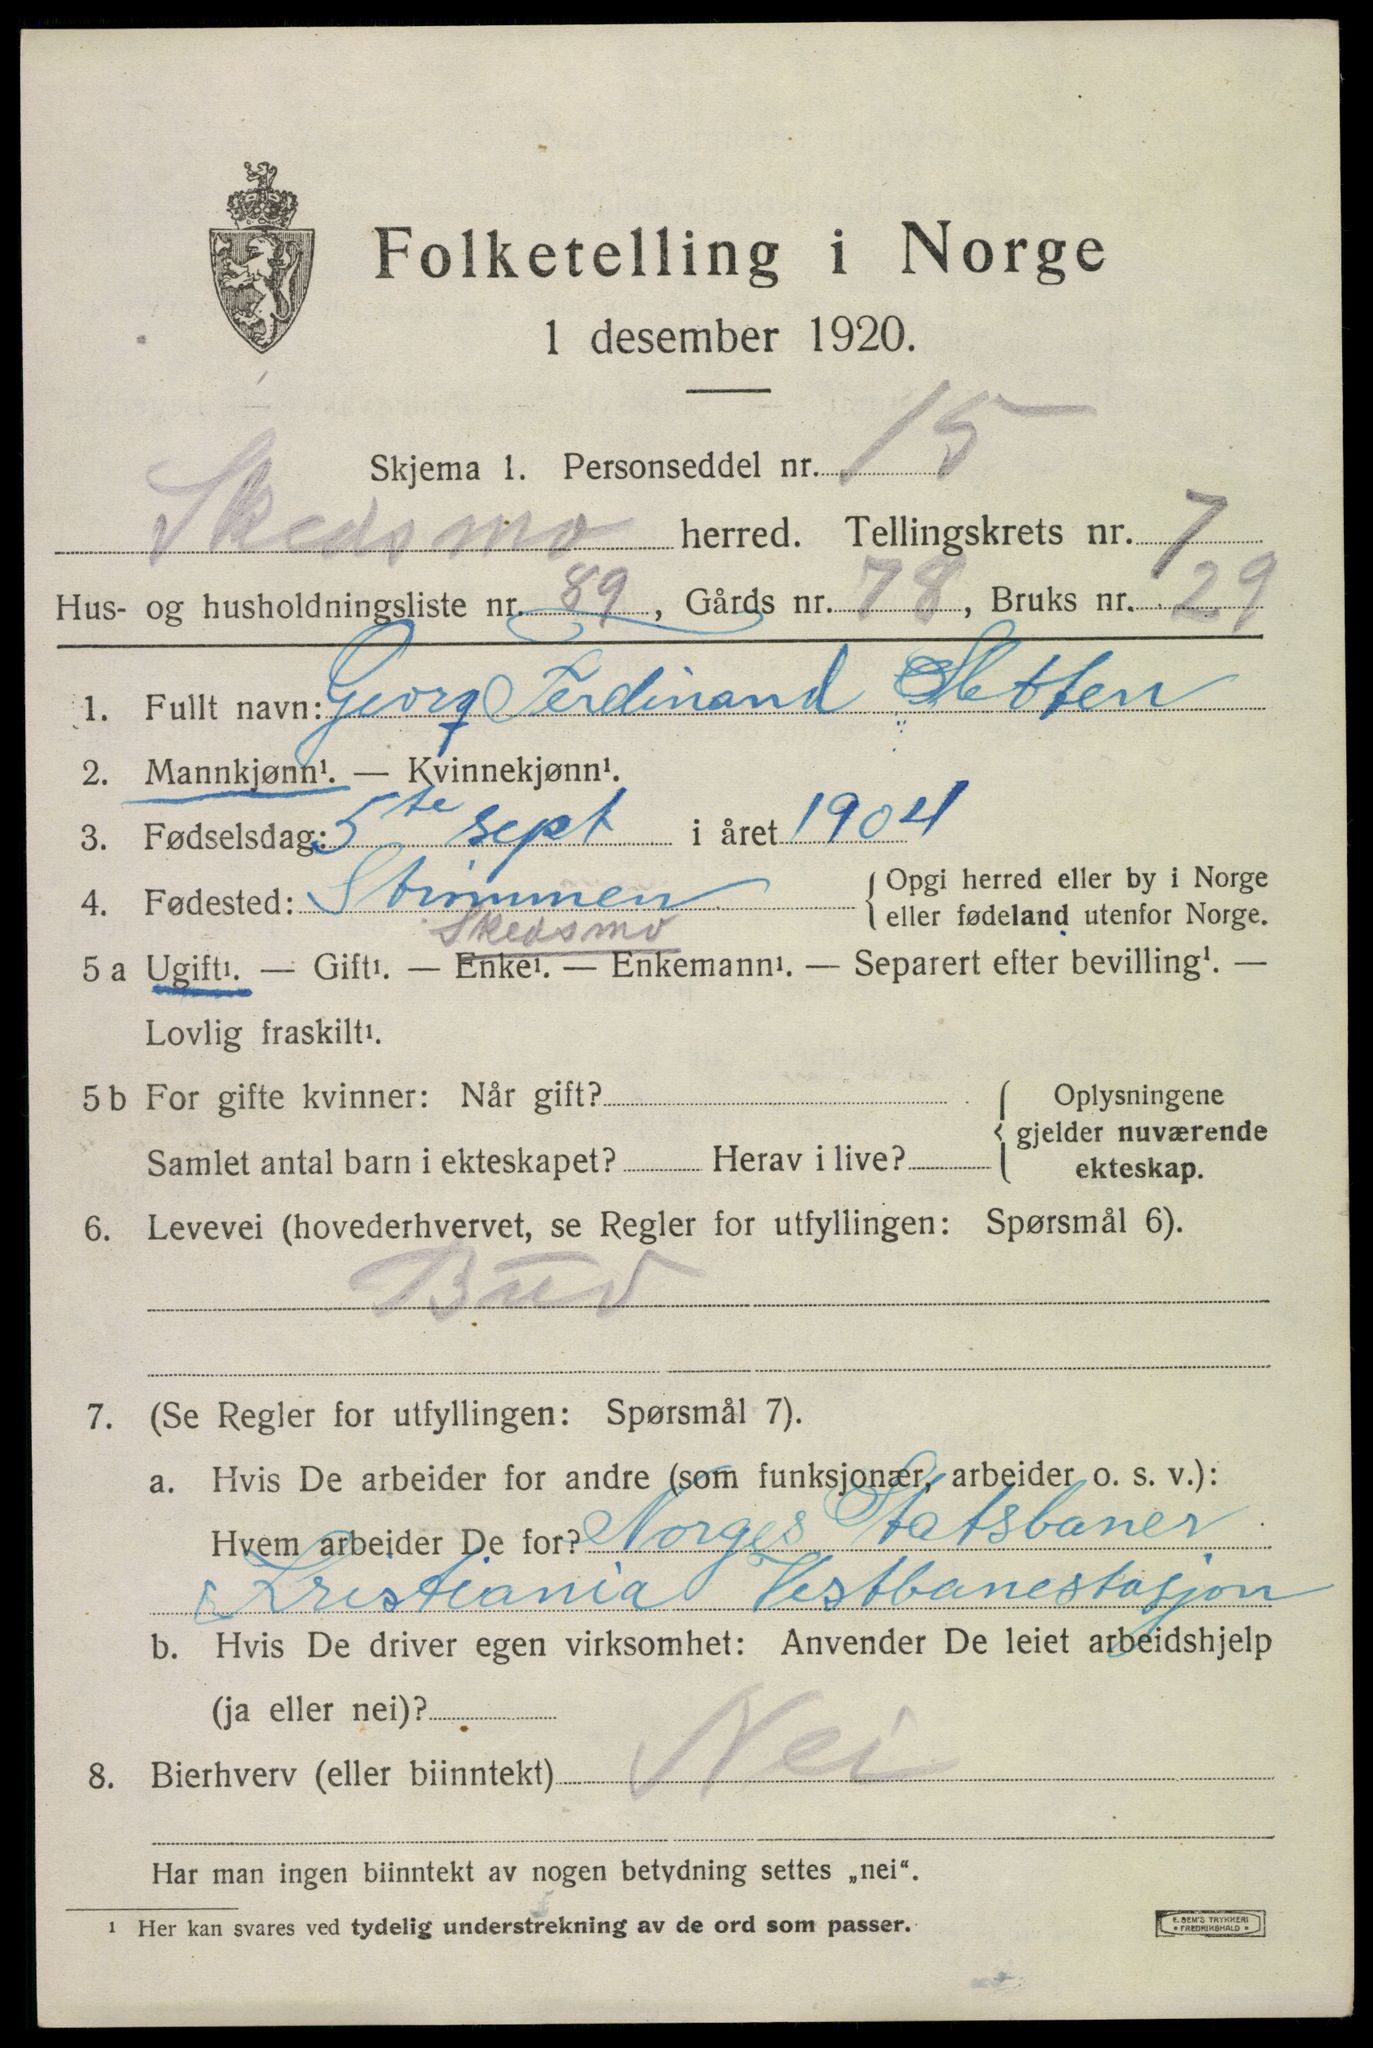 Folketelling i Norge
1 desember 1920.
Skjema 1. Personseddel nr. 15
Skedsmo herred. Tellingskrets nr. 7
Hus- og husholdningsliste nr. 89, Gårds nr. 78, Bruks nr. 29
1. Fullt navn: Georg Ferdinand Sletten
2. Mannkjønn¹. — Kvinnekjønn¹.
3. Fødselsdag: 5te sept i året 1904
4. Fødested: Strømmen { Opgi herred eller by i Norge
eller fødeland utenfor Norge.
Skedsmo
5 a Ugift¹. — Gift¹. — Enke¹. — Enkemann¹. — Separert efter bevilling¹. —
Lovlig fraskilt¹.
5 b For gifte kvinner: Når gift? { Oplysningene
gjelder nuværende
Samlet antal barn i ekteskapet? Herav i live? ekteskap.
6. Levevei (hovederhvervet, se Regler for utfyllingen: Spørsmål 6).
Bud
7. (Se Regler for utfyllingen: Spørsmål 7).
a. Hvis De arbeider for andre (som funksjonær, arbeider o. s. v.):
Hvem arbeider De for? Norges Statsbaner
Kristiania Vestbanestasjon
b. Hvis De driver egen virksomhet: Anvender De leiet arbeidshjelp
(ja eller nei)?
8. Bierhverv (eller biinntekt) Nei
Har man ingen biinntekt av nogen betydning settes „nei“.
¹ Her kan svares ved tydelig understrekning av de ord som passer.
E. SEM'S TRYKKERI
FREDRIKSHALD